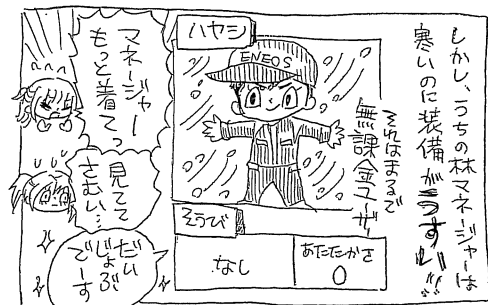 しかし、うちの林マネージャーは
寒いのに装備がうすい!!
それはまるで
無課金ユーザー
ハヤシ
ENEOS
そうび
なし
あたたかさ
0
マネージャー
もっと着てっ
見てて
さむい…
だい
じょぶ
でーす